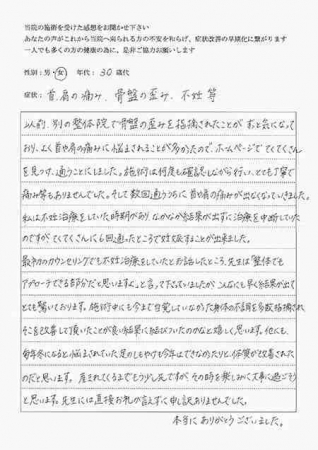 当院の施術を受けた感想をお聞かせ下さい
あなたの声がこれから当院へ向られる方の不安を和らげ、症状改善の早期化に繋がります
一人でも多くの方の健康の為に、是非ご協力お願いします
性別：男・女 年代：30歳代
症状：首、肩の痛み、骨盤の歪み、不妊等
以前、別の整体院で骨盤の歪みを指摘されたことがずっと気になって
おり、よく首や肩の痛みに悩まされることが多かったので、ホームページでてくてくさん
を見つけ、通うことにしました。施術は何度も確認しながら行い、とても丁寧で
痛み等もありませんでした。そして数回通ううちに首や肩の痛みが出なくなっていきました。
私は不妊治療をしていた時期があり、なかなか結果が出ずに治療を中断していた
のですが、てくてくさんに6回通ったところで妊娠することが出来ました。
最初のカウンセリングでも不妊治療をしていたとお話したところ、先生は"整体でも
アプローチできる部分だと思いますよ。"と言って下さっていましたが、こんなにも早く結果が出て
とても驚いております。施術中にも今まで自覚していなかった身体の不調を多数指摘され、
そこを改善して頂いたことが良い結果に結びついたのかなと嬉しく思います。他にも、
毎年冬になると悩まされていた足のしもやけも今年はできなかったりと、体質が改善された
のだと思います。産まれてくるまでもう少し先ですが、その時を楽しみに大事に過ごそう
と思います。先生には直接お礼が言えずに申し訳ありませんでした。
本当にありがとうございました。